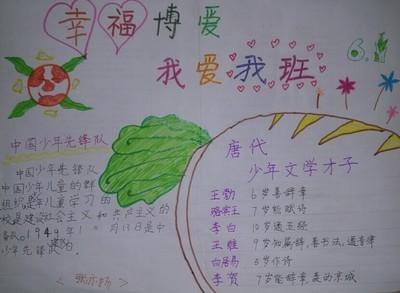 幸福博爱
我爱我班
6.1
中国少年先锋队
中国少年先锋队
中国少年儿童的群
组织是年儿童学习的
校是建设社会主义和共产主义的
备队。1949年10月13日是中
少年先锋队建队
唐代
少年文学才子
王勃 6岁善辞章
骆宾王 7岁能赋诗
李白 10岁通五经
王维 9岁知属辞,善书法,通音律
白居易 5岁作诗
李贺 7岁能辞章,轰动京城